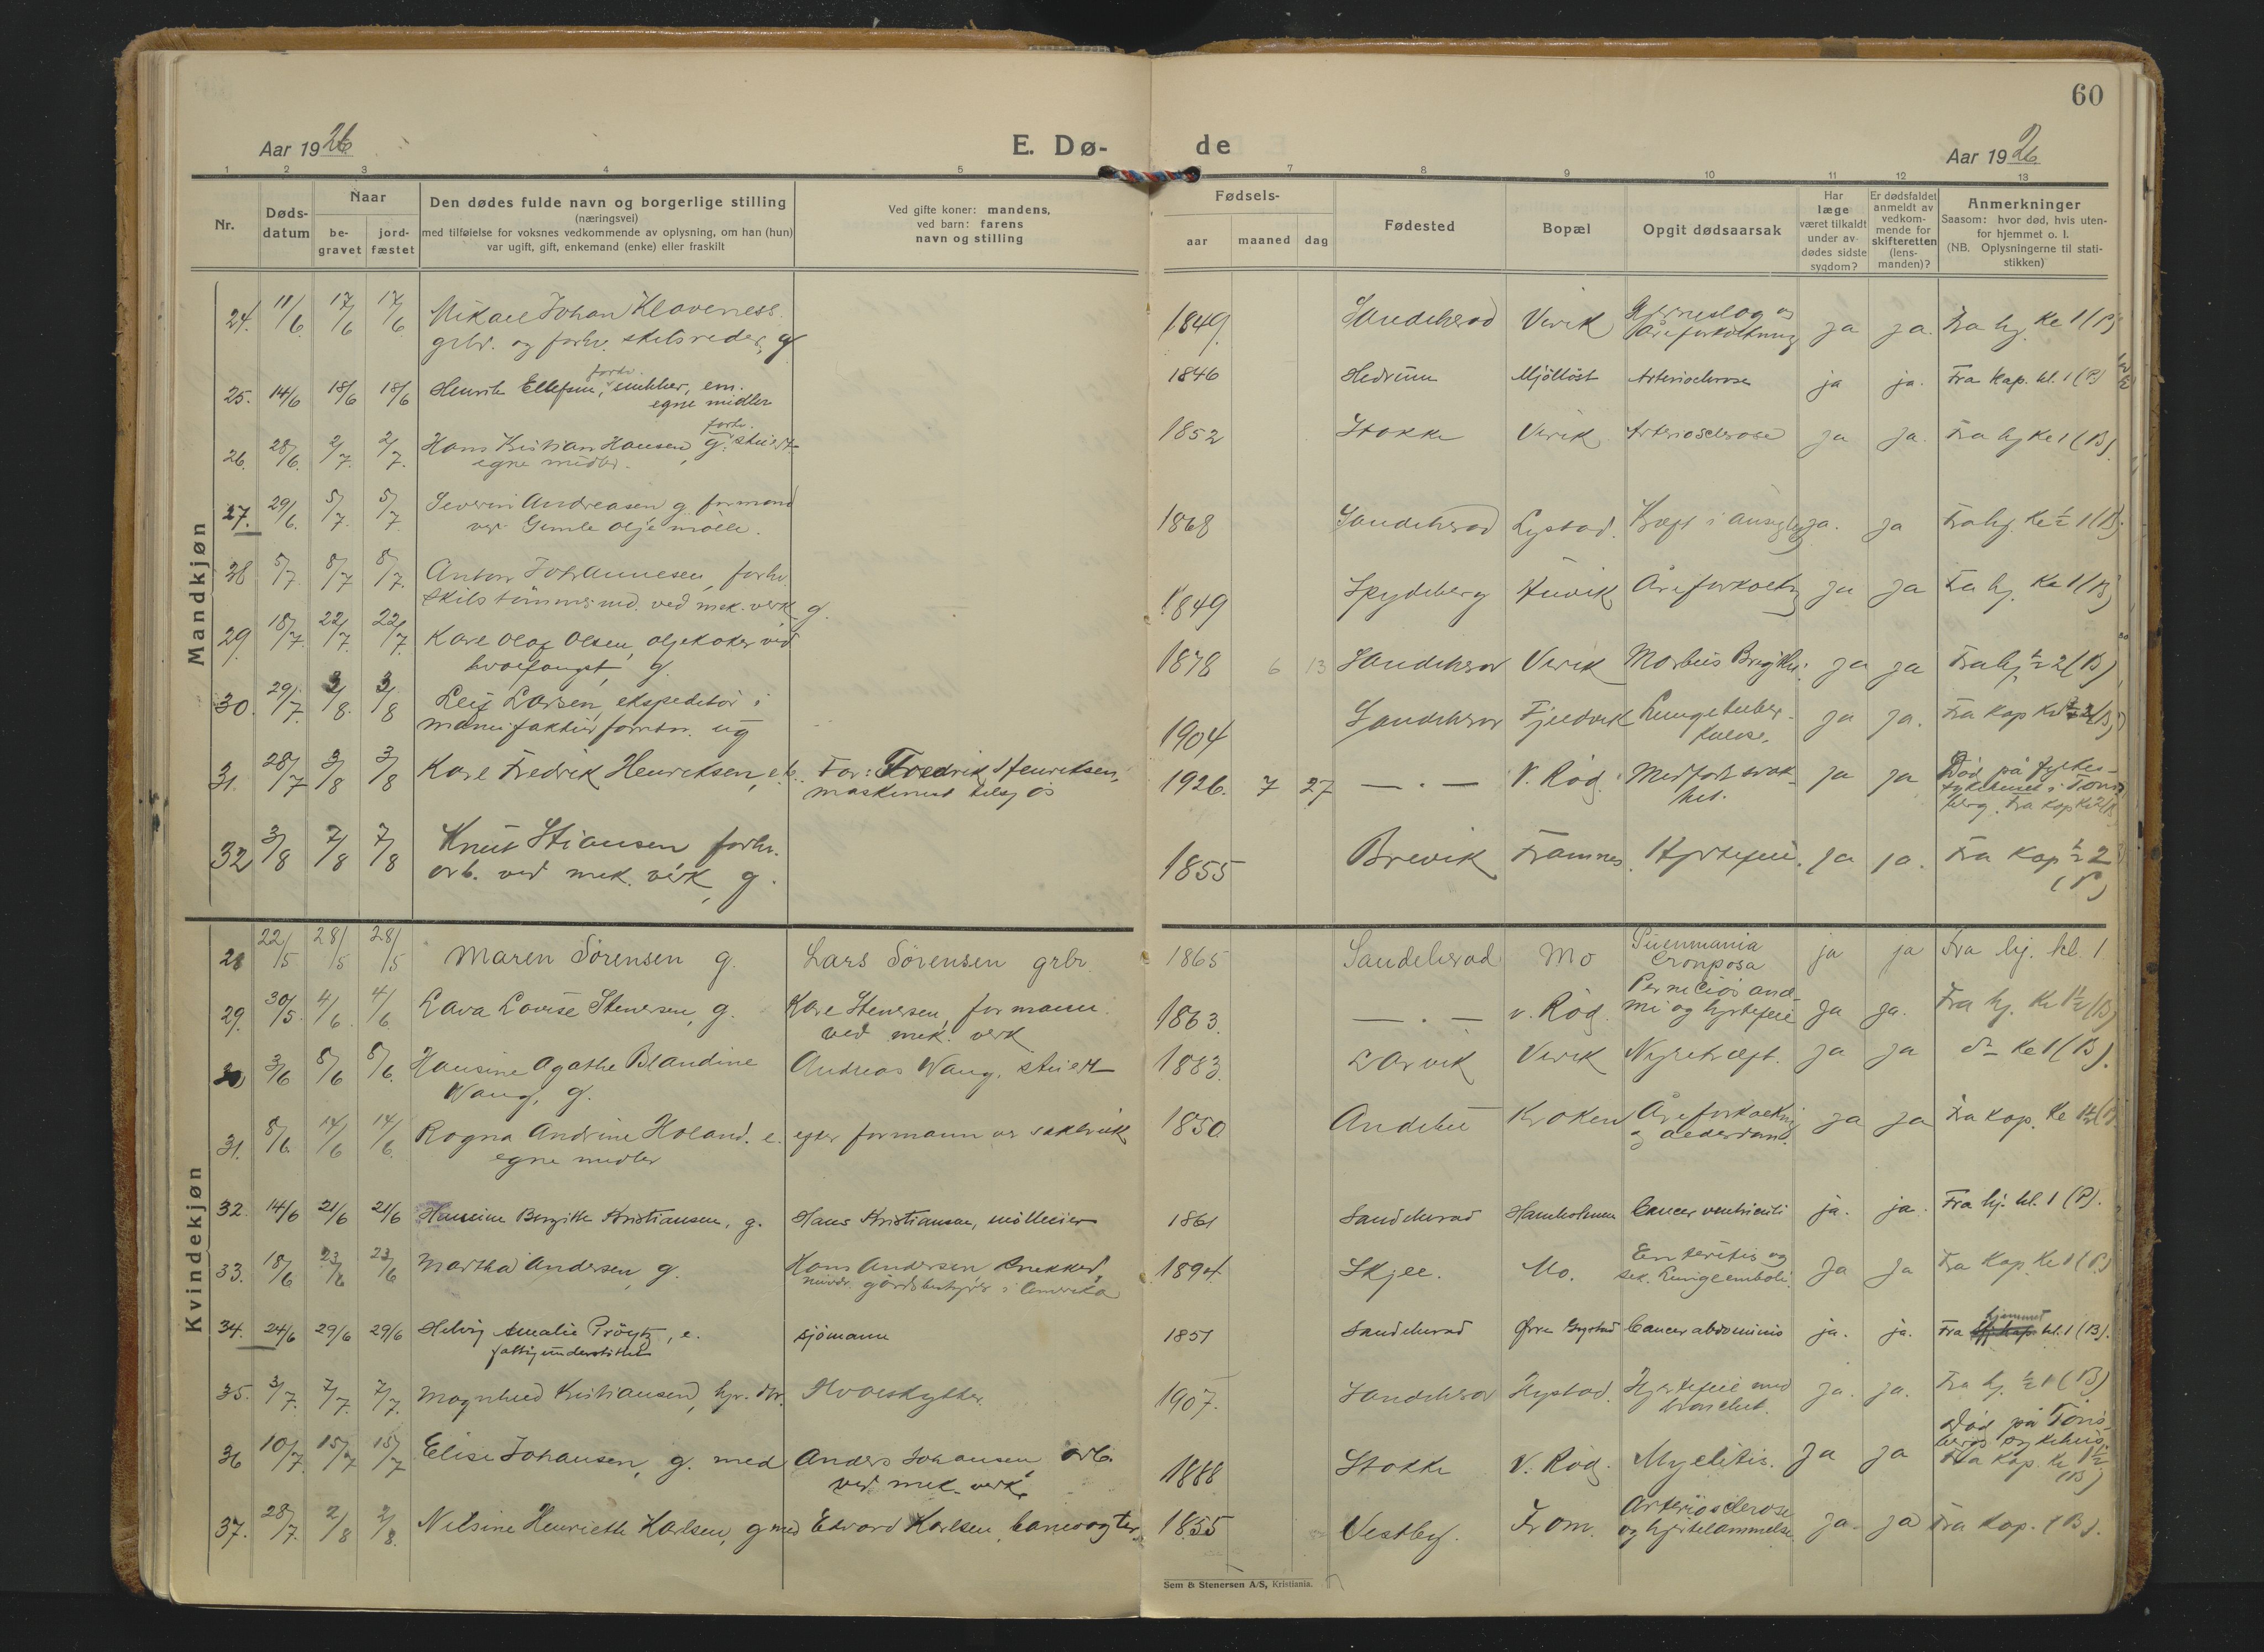 60
Aar 1926
E. Dø-
de
Aar 1926
1 2 3 4 5 7 8 9 10 11 12 13
Nr.
Døds-
datum
Naar
be-
gravet
jord-
fæstet
Den dødes fulde navn og borgerlige stilling
(næringsvei)
med tilføielse for voksnes vedkommende av oplysning, om han (hun)
var ugift, gift, enkemand (enke) eller fraskilt
Ved gifte koner: mandens,
ved barn: farens
navn og stilling
Fødsels-
aar maaned dag
Fødested
Bopæl
Opgit dødsaarsak
Har
læge
været tilkaldt
under av-
dødes sidste
sygdom?
Er dødsfaldet
anmeldt av
vedkom-
mende for
skifteretten
(lens-
manden)?
Anmerkninger
Saasom: hvor død, hvis uten-
for hjemmet o. l.
(NB. Oplysningerne til stati-
stikken)
Mandkjøn
24. 11/6 17/6 17/6 Mikael Johan Klaveness
grbr. og forhv. skibsreder, g
1849. Sandeherad Virik Hjerneslag og
Åreforkalkning ja ja. Fra hj. Kl 1 (P)
25. 14/6 18/6 18/6 Henrik Ellefsen, forhv. snekker, em.
egne midler
1846 Hedrum Mjöllöst Arteriosclerose ja ja. Fra Kap. kl. 1 (P)
26. 28/6. 2/7. 2/7. Hans Kristian Hansen, g. forhv. stuert
egne midler.
1852 Stokke Virik Arteriosclerose ja ja. Fra hj Kl 1 (B)
27. 29/6. 5/7. 5/7 Severin Andreasen g. formand
ved Gimle olje mölle.
1868 Sandeherad Lystad. Kræft i ja. ja Fra hj. Kl 1/2 1 (B).
28 5/7. 8/7 8/7. Anton Johannesen, forhv.
skibstömmermd. ved mek. verk g.
1849 Spydeberg Huvik Åreforkalkn ja ja Fra hj. Kl 1 (B)
29. 18/7. 22/7. 22/7. Karl Olaf Olsen, oljekoker ved
hvalfangst, g.
1878 6 13 Sandeherad Virik Morbus Brigthii. ja ja Fra hj 1/2 2 (B)
30. 29/7. 3/8. 3/8 Leif Larsen, ekspeditör i
manufakturforretn. ug
1904 Sandeherad Fjeldvik Lungetuber-
kulose. ja ja. Fra Kap Kl 1/2 2 (B)
31. 28/7 3/8 3/8 Karl Fredrik Henriksen, e.b. Far: Fredrik Henriksen,
maskinist
1926. 7 27 — . — V. Röd. Medfödt svak-
het. ja ja Död på fylkes-
sykehuset i Töns-
berg. Fra Kap Kl 2 (B)
32 3/8 7/8 7/8 Knut Stiansen forhv.
arb. ved mek. verk, g.
1855 Brevik Framnes. Hjertefeil. ja ja. Fra Kap 1/2 2
(P)
Kvindekjøn
28 22/5 28/5 28/5 Maren Sörensen g. Lars Sörensen grbr.
1865 Sandeherad Mo Pneumonia
Crouposa ja ja Fra hj. kl. 1
29. 30/5. 4/6. 4/6. Lava Lovise Stenersen, g. Karl Stenersen, formann
ved mek. verk
1863. — . — v. Röd. Perniciös anæ-
mi og hjertefeil ja ja. Fra hj. Kl 1 1/2 (B)
30 3/6 8/6 8/6. Hansine Agathe Blandine
Wang, g. Andreas Wang, stuert
1883. Larvik Virik Nyrekræft. ja ja do Kl 1 (B).
31. 8/6. 14/6 14/6. Ragna Andrine Holand. e.
egne midler efter formann ved sakbruk
1850 Andebu Kroken Åreforkalkning
og alderdom. ja ja Fra Kap. Kl 1 1/2 (B)
32. 14/6 21/6 21/6 Hansine Bergitte Kristiansen, g. Hans Kristiansen, mölleeier
1861 Sandeherad Hamholmen Cancer ventriculi ja. ja. Fra hj. kl. 1 (P).
33. 18/6 23/6 23/6 Martha Andersen g. Hans Andersen snekker,
nuvær. gårdsbestyrer i Amerika
1894. Skjee. Mo. Enteritis og
sek. Lungeemboli. ja ja Fra Kap. Kl 1 (P.)
34. 24/6 29/6 29/6 Helvig Amalie Pröytz, e.
fattigunderstöttet sjömann
1851 Sandeherad Øvre Gogstad Cancer abdominis ja. ja. Fra hjemmet kl. 1 (B).
35. 3/7. 7/7. 7/7. Magnhild Kristiansen, hj. dtr. Hvalskytter.
1907. Sandeherad Hystad. Hjertefeil med
bronchit. ja. ja. Fra hj. 1/2 1 (B)
36 10/7. 15/7 15/7 Elise Johansen, g. med Anders Johansen arb.
ved mek. verk.
1888 Stokke V. Röd. Myelitis. ja ja Död på Töns-
bergs sykehus.
Fra Kap. Kl 1 1/2
(B)
37. 28/7. 2/8 2/8. Nilsine Henriette Karlsen, g med Edvard Karlsen, banevogter
1855 Vestby. Fram. Arteriosclerose
og hjertelammelse. ja. ja Fra Kap. (B).
Sem & Stenersen A/S, Kristiania.